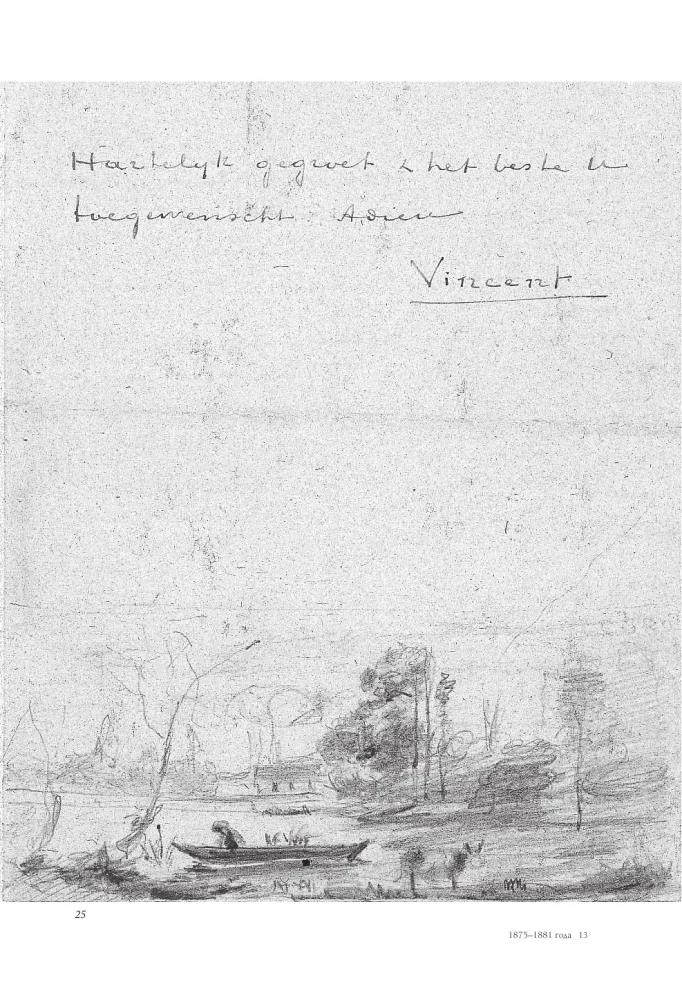 Hartelyk gegroet & het beste U
toegewenscht. Adieu
Vincent
25
1875–1881 года 13